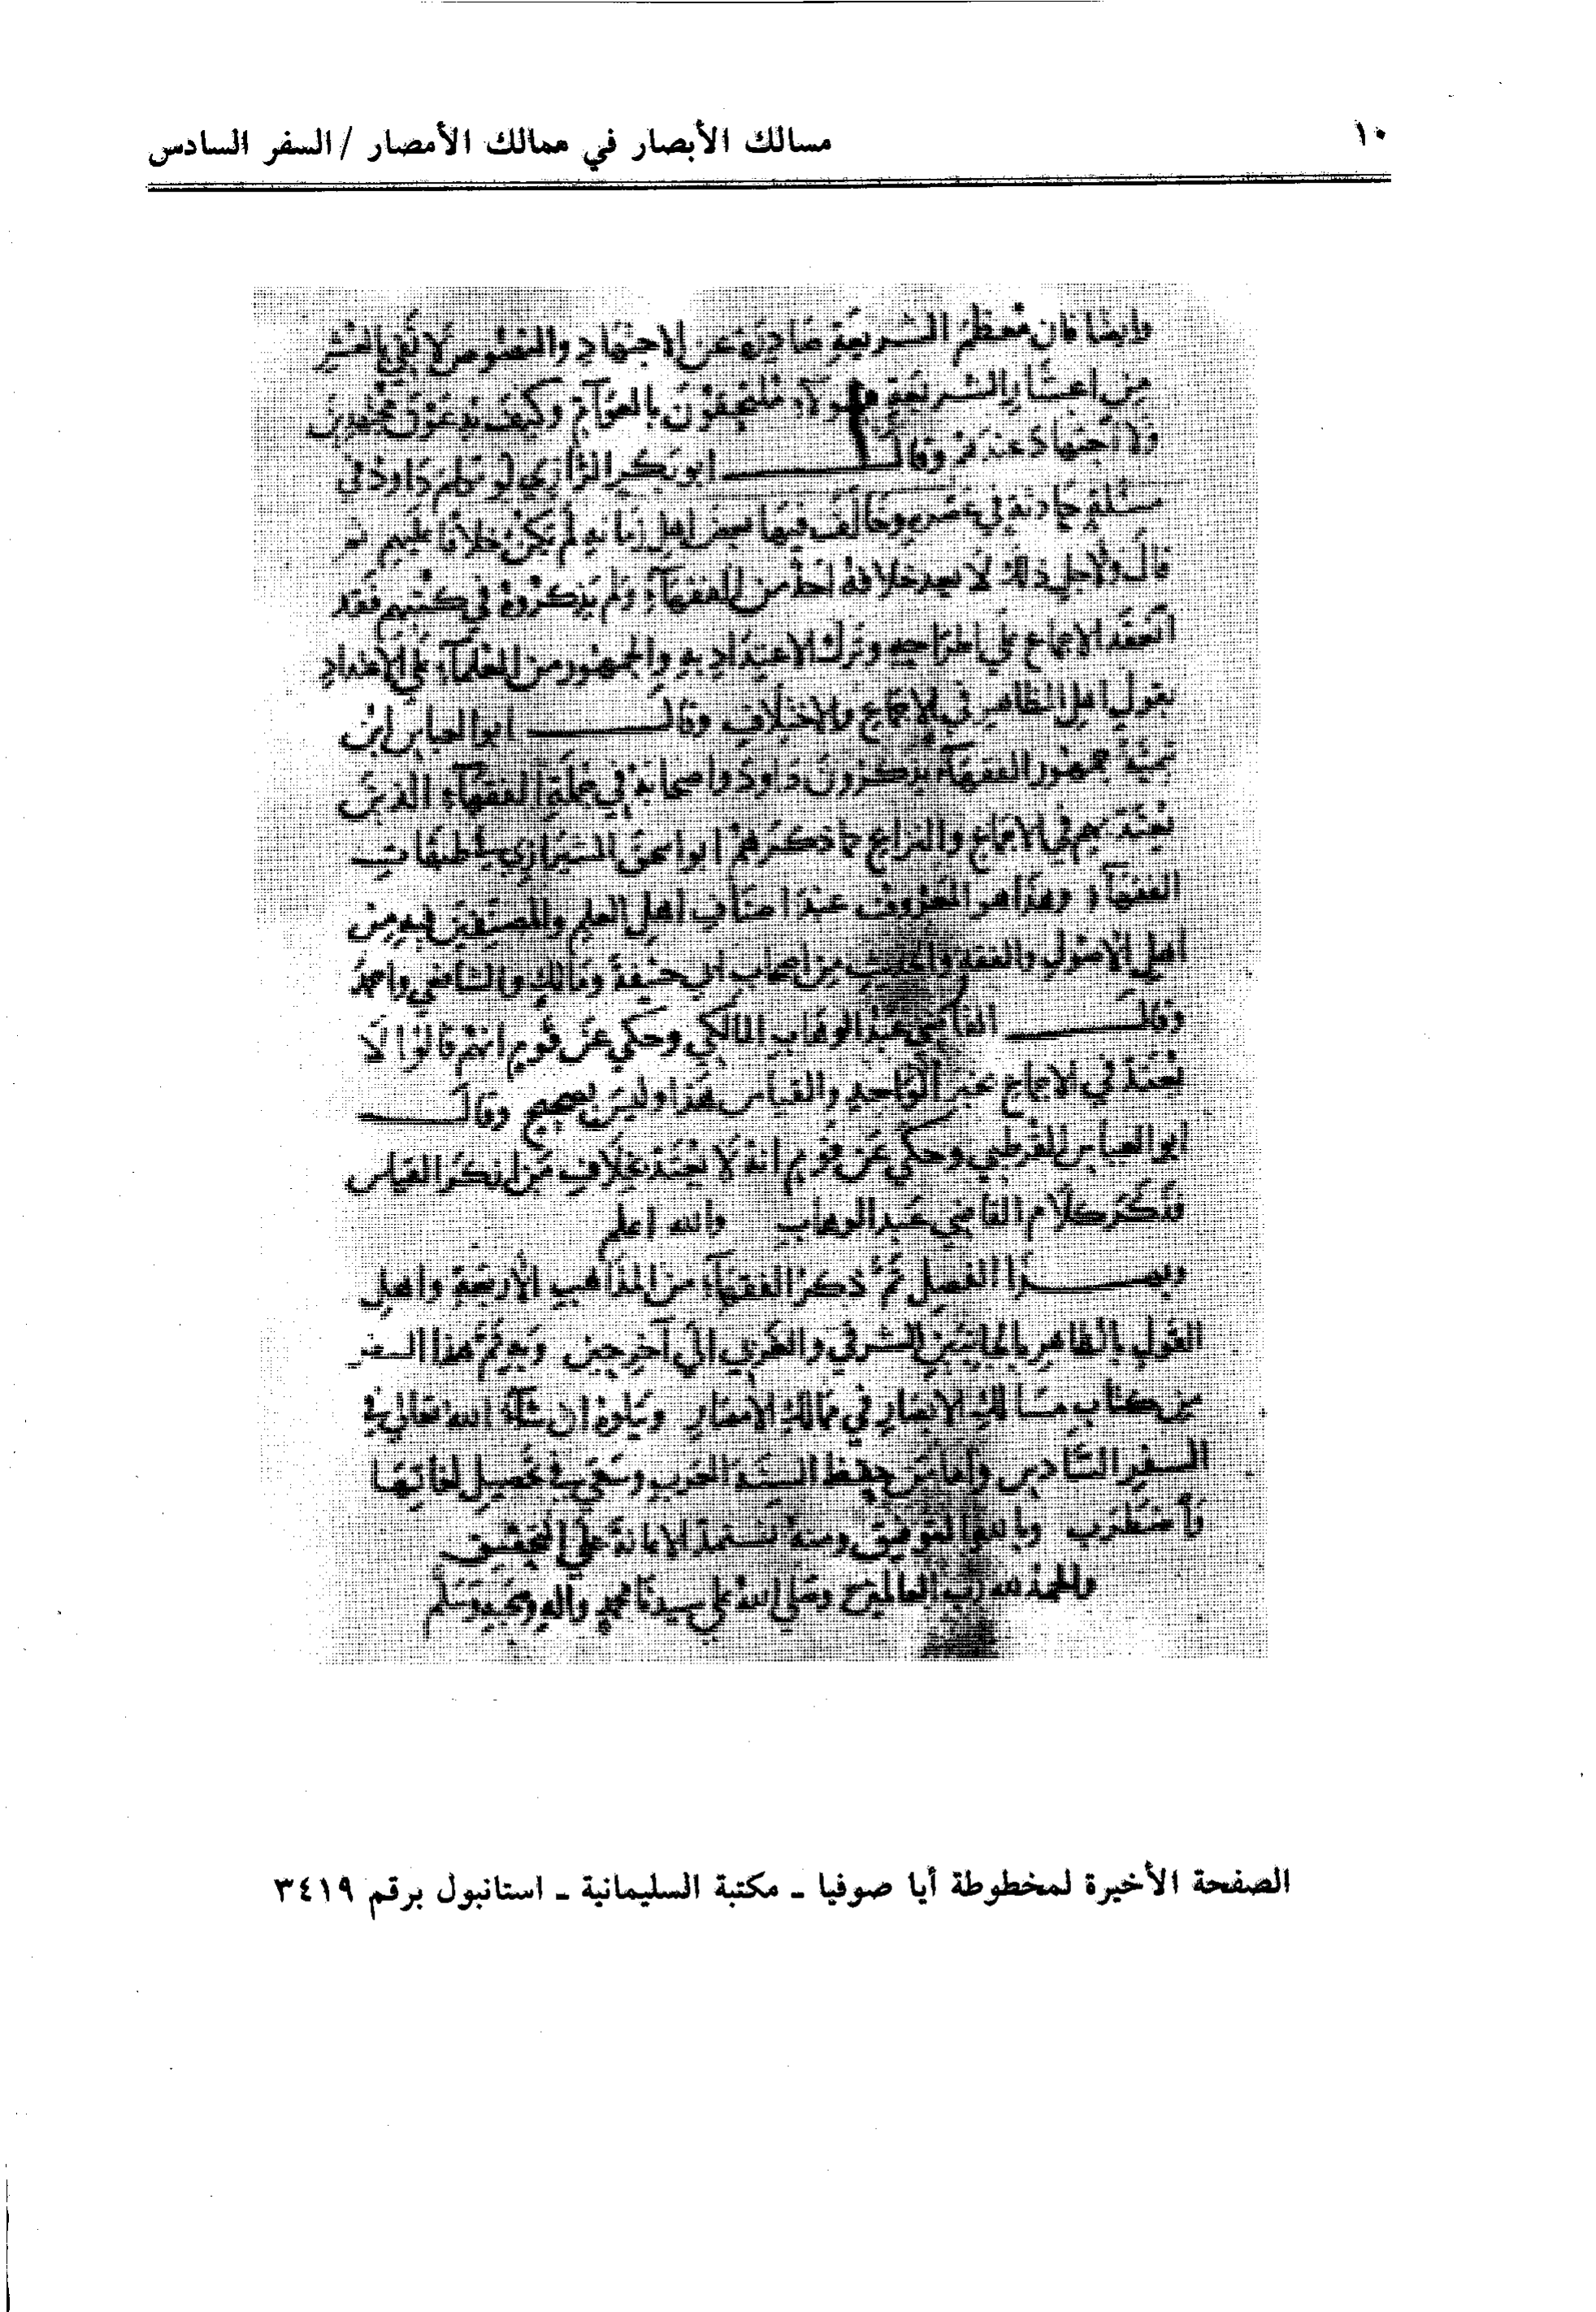 ١٠
مسالك الأبصار في ممالك الأمصار / السفر السادس
وايضا فان معظم الشريعة صادرة عن الاجتهاد والنصوص لا تفي بالعشر
من اعشار الشريعة وهولاء ملتحقون بالعوام وكيف يدعون مجتهدين
ولا اجتهاد عندهم وقال ابو بكر الرازي لو تكلم داود في
مسئلة حادثة في عصره وخالف فيها بعض اهل زمانه لم يكن خلافا عليهم ثم
قال ولاجل ذلك لا يعد خلافه احد من الفقهاء ولم يذكروه في كتبهم فقد
انعقد الاجماع على اطراحه وترك الاعتداد به والجمهور من العلماء على الاعتداد
بقول اهل الظاهر في الاجماع والاختلاف وقال ابو العباس ابن
جمهور الفقهاء يذكرون داود واصحابه في جملة الفقهاء الذين
يعتد بهم في الاجماع والنزاع كما ذكرهم ابو اسحق الشيرازي في طبقات
الفقهاء وهذا هو المعروف عند اصناف اهل العلم والمصنفين فيه من
اهل الاصول والفقه والحديث من اصحاب ابي حنيفة ومالك والشافعي واحمد
وقال القاضي عبد الوهاب المالكي وحكي عن قوم انهم قالوا لا
يعتد في الاجماع بخبر الواحد والقياس هذا وليس بصحيح وقال
ابو العباس القرطبي وحكي عن قوم انه لا يعتد بخلاف من انكر القياس
فذكر كلام القاضي عبد الوهاب والله اعلم
وبهذا الفصل تم ذكر الفقهاء من المذاهب الاربعة واهل
القول بالظاهر بالجانبين الشرقي والغربي الى آخر حين وبه تم هذا السفر
من كتاب مسالك الابصار في ممالك الامصار ويتلوه ان شاء الله تعالى في
السفر السادس وأما من حفظ العرب وسعى في تحصيل لغاتها
وبالله التوفيق ومنه نستمد الاعانة على التحقيق
والحمد لله رب العالمين وصلى الله على سيدنا محمد واله وصحبه وسلم
الصفحة الأخيرة لمخطوطة أيا صوفيا ـ مكتبة السليمانية ـ استانبول برقم ٣٤١٩